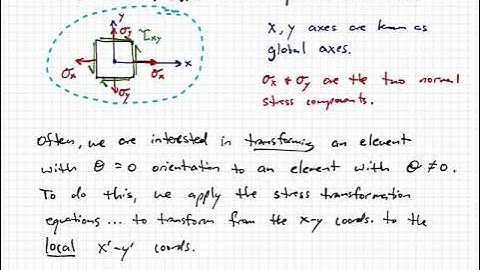 y
σy
τxy
x
σx
σx
σy
x, y axes are known as
global axes.
σx & σy are the two normal
stress components.
Often, we are interested in transforming an element
with θ = 0 orientation to an element with θ ≠ 0.
To do this, we apply the stress transformation
equations... to transform from the x-y coords. to the
local x'-y' coords.